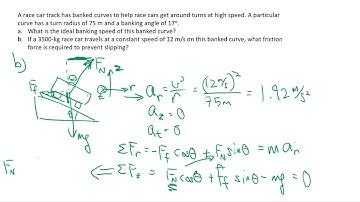 A race car track has banked curves to help race cars get around turns at high speed. A particular
curve has a turn radius of 75 m and a banking angle of 17°.
a. What is the ideal banking speed of this banked curve?
b. If a 3500-kg race car travels at a constant speed of 12 m/s on this banked curve, what friction
force is required to prevent slipping?
b)
F_N z
F_f θ r
θ mg
a_r = v²/r = (12 m/s)²/75m = 1.92 m/s²
a_z = 0
a_t = 0
ΣF_r = -F_f cosθ + F_N sinθ = m a_r
F_N ⇐ ΣF_z = F_N cosθ + F_f sinθ - mg = 0